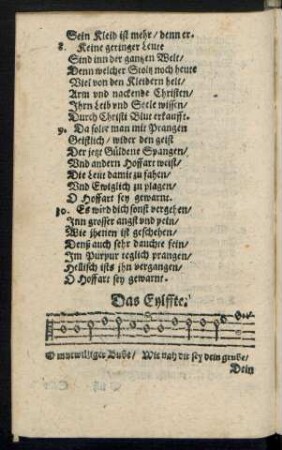 Sein Kleid ist mehr / denn er.
8. Keine geringer Leute
Sind inn der gantzen Welt /
Denn welcher Stoltz noch heute
Viel von den Kleidern helt /
Arm vnd nackende Christen /
Ihrn Leib vnd Seele wissen /
Durch Christi Blut erkaufft.
9. Da solt man mit Prangen
Geistlich / wider den geist
Der jetzt Güldene Spangen /
Vnd andern Hoffart weist /
Die Leut damit zu fahen /
Vnd Ewiglich zu plagen /
O Hoffart sey gewarnt.
10. Es wird dich sonst vergehen /
Inn grosser angst vnd pein /
Wie jhenen ist geschehen /
Denß auch sehr dauchte fein /
Im Purpur teglich prangen /
Hellisch ists ihn vergangen /
O Hoffart sey gewarnt.
Das Eylffte.
O mutwilliger Bube / Wie nah dir sey dein grube /
Dein